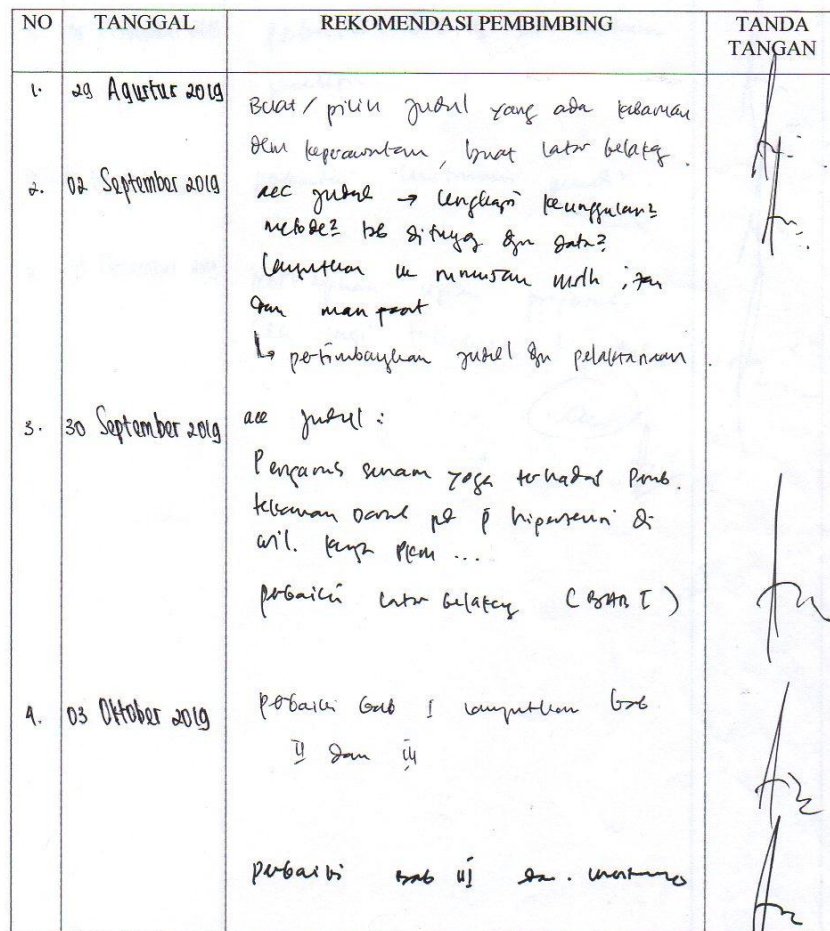 NO TANGGAL REKOMENDASI PEMBIMBING TANDA TANGAN
1. 29 Agustus 2019
Buat / pilih judul yang ada
keperawatan, buat latar belakg.
2. 02 September 2019
acc judul → lengkapi keunggulan2
metode2 data2
lanjutkan
dan manfaat
↳ pertimbangkan judul dgn pelaksanaan
3. 30 September 2019
acc judul :
Pengaruh senam yoga terhadap
tekanan darah pd p hipertensi di
wil. kerja PKM ...
perbaiki latar belakg (BAB I)
4. 03 Oktober 2019
perbaiki bab I lanjutkan bab
II dan III
perbaiki bab III